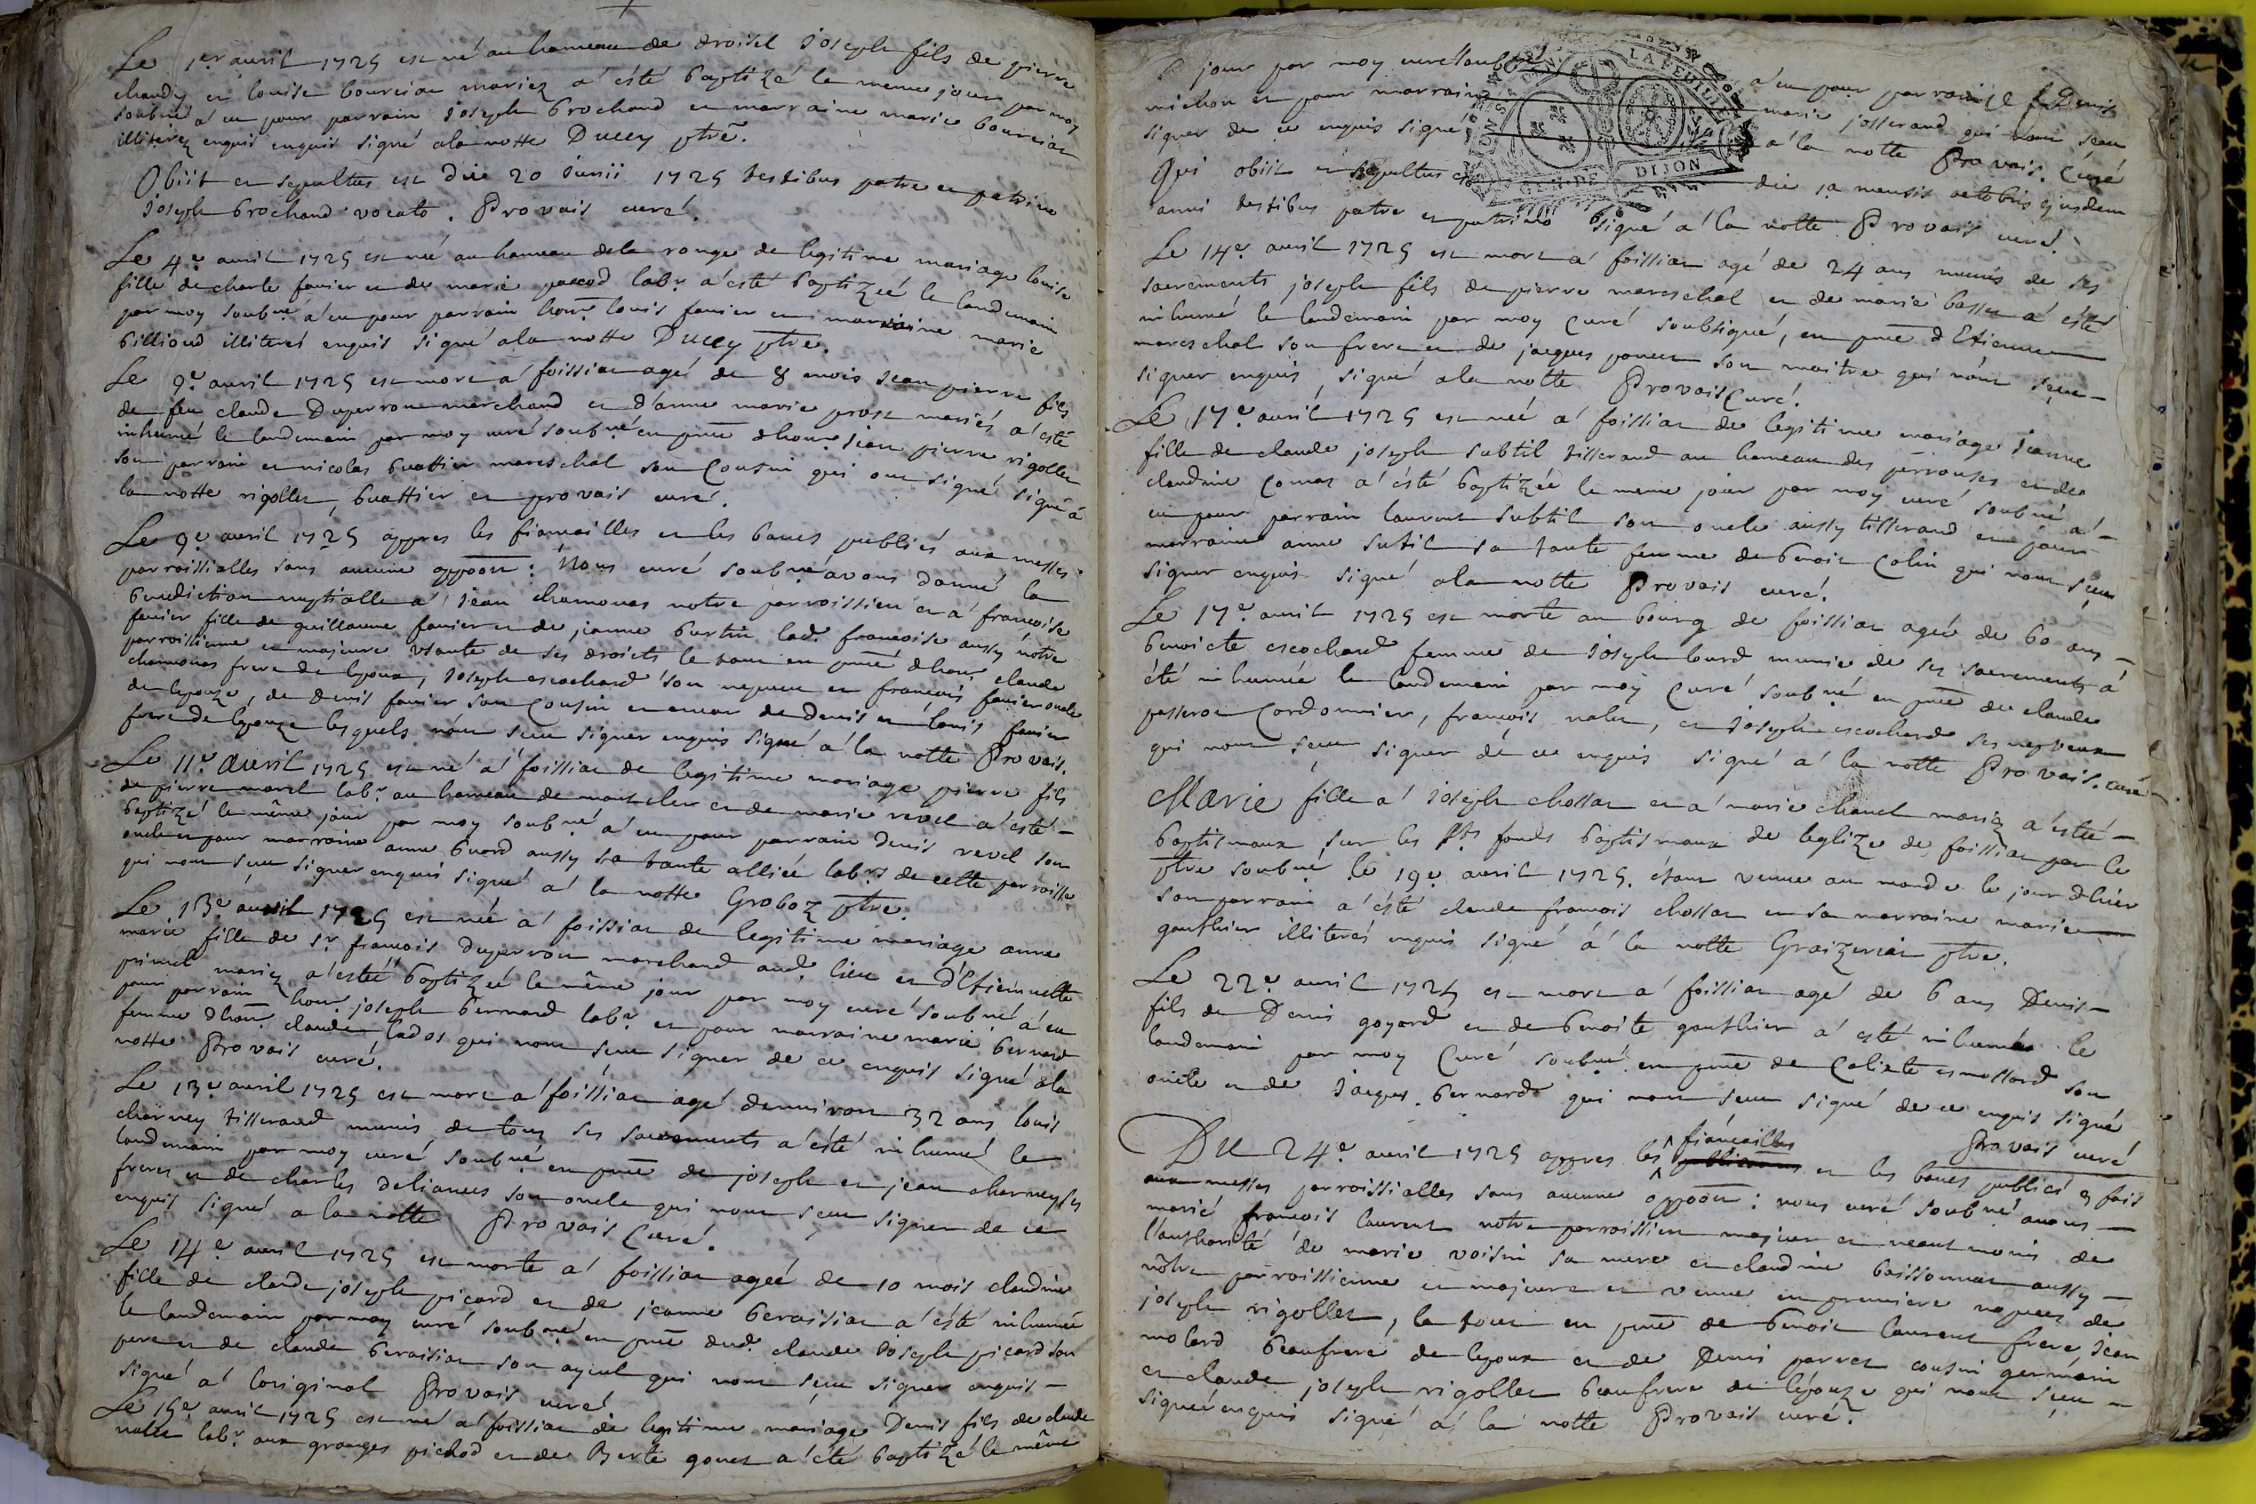 Le 1er avril 1725 est né au hameau de droisel Joseph fils de pierre
chandy et louise bourcian mariez a été baptizé le meme jour par moy
soubné a eu pour parrain Joseph brochand et marraine marie bourcian
illiterez enquis enquis signé a la notte Ducey ptre.
Obiit et sepultus est die 20 Junii 1725 testibus patre et patrino
Joseph brochand vocato. Provais curé.
Le 4e avril 1725 est née au hameau de la ronge de legitime mariage louise
fille de charle favier et de marie pacod labr a esté baptizeé le landemain
par moy soubné a eu pour parrain hon. louis favier et marraine marie
billioud illiterés enquis signé a la notte Ducey ptre.
Le 9e avril 1725 est mort a foissiat agé de 8 mois Jean pierre fils
de feu claude Duperron marchand et d'anne marie prost mariés a esté
inhumé le landemain par moy curé soubné en pnce d hon. Jean pierre rigollet
son parrain et nicolas buattier mareschal son Cousin qui ont signé signé a
la notte rigollet, buattier et provais curé.
Le 9e avril 1725 appres les fiancailles et les bancs publiés aux messes
parroissialles sans aucune oppoon: Nous curé soubné avons donné la
benediction nuptialle a Jean chamonas notre parroissien et a francoise
favier fille de guillaume favier et de jeanne burtin lad. francoise aussy nôtre
parroissienne et majeure usante de ses droicts le tout en pnce d hon. claude
chamonas frere de lepoux, Joseph escochard son nepveu et francois favier oncle
de lepouze, de denis favier son Cousin et encor de denis et louis favier
frere de lépouze lesquels n'ont sceu signer enquis signé a la notte Provais.
Le 11e avril 1725 est né a foissiat de legitime mariage pierre fils
de pierre morel labr au hameau de montcler et de marie revel a esté
baptizé le même jour par moy soubné a eu pour parrain Denis revel son
oncle et pour marraine anne buord aussy sa tante alliée labrs de cette parroisse
qui nont sceu signer enquis signé a la notte Groboz ptre.
Le 13e avril 1725 est née a foissiat de legitime mariage anne
marie fille de sr francois Duperron marchand aud. lieu et d'Etiennette
primel mariez a esteé baptizeé le même jour par moy curé soubné a eu
pour parrain hon. joseph bernard labr et pour marraine marie bernard
femme d hon. claude lados qui nont sceu signer de ce enquis signé a la
notte Provais curé.
Le 13e avril 1725 est mort a foissiat agé denviron 32 ans louis
charney tisserand munis de tous ses sacrements a été inhumé le
landemain par moy curé soubné en pnce de joseph et jean charney ses
freres et de charles deliances son oncle qui nont sceu signer de ce
enquis signé a la notte Provais Curé.
Le 14e avril 1725 est morte a foissiat ageé de 10 mois claudine
fille de claude joseph picard et de jeanne beraissiat a été inhumée
le landemain par moy curé soubné en pnce dud. claude Joseph picard son
pere et de claude beraisiat son ayeul qui nont sceu signer enquis
signé a loriginal Provais curé
Le 15e avril 1725 est né a foissiat de legitime mariage Denis fils de claude
nallet labr aux granges pichod et de Berte gonet a été baptizé le même
jour par moy curé soubné a eu pour parrain Denis
michon et pour marraine marie josserand qui nont sceu
signer de ce enquis signé a la notte Provais. Curé
Qui obiit et sepultus est die 1a mensis octobris ejusdem
anni testibus patre et patrino signé a la notte Provais curé.
Le 14e avril 1725 est mort a foissiat agé de 24 ans munis de ses
sacrements joseph fils de pierre mareschal et de marie basset a esté
inhumé le landemain par moy Curé soubsigné, en pnce d Etienne
mareschal son frere et de jacques poncet son maitre qui n'ont sceu
signer enquis, signé a la notte Provais Curé.
Le 17e avril 1725 est née a foissiat de legitime mariage Jeanne
fille de claude joseph subtil tisserand au hameau des perrouses et de
claudine Comas a été baptizée le meme jour par moy curé soubné a
eu pour parrain laurent subtil son oncle aussy tisserand et pour
marraine anne subtil sa tante femme de benoit Colin qui nont sceu
signer enquis signé a la notte Provais curé.
Le 17e avril 1725 est morte au bourg de foissiat ageé de 60 ans
benoicte escochard femme de Joseph lourd munie de ses sacrements a
été inhumée le landemain par moy Curé soubné en pnce de claude
passerot Cordonnier, francois nalet, et Joseph escochard ses nepveux
qui nont sceu signer de ce enquis signé a la notte Provais. curé
Marie fille a Joseph chossat et a marie chanel mariez a esteé
baptismaux sur les sts fonds baptismaux de leglize de foissiat par le
ptre soubné le 19e avril 1725. étant venue au monde le jour d hier
son parrain a été claude francois chossat et sa marraine marie
gauthier illiterés enquis signé a la notte Graizeriat ptre.
Le 22e avril 1725 est mort a foissiat agé de 6 ans Denis
fils de Denis goyard et de benoite gauthier a esté inhumé le
landemain par moy Curé soubné en pnce de Calixte esmossard son
oncle et de Jacques bernard qui nont sceu signé de ce enquis signé
Provais curé
DU 24e avril 1725 appres les fiancailles et les bancs publiés et fais
aux messes parroissialles sans aucune oppoon: nous curé soubné avons
marié francois laurent notre parroissien majeur et neant moins de
l'authorité de marie voisin sa mere et claudine boissonnat aussy
nôtre parroissienne et majeure et venue en premiere nopces de
joseph rigollet, le tout en pnce de benoit laurent frere, Jean
molard beaufrere de lepoux et de Denis parret cousin germain
et claude joseph rigollet beaufrere de lépouze qui nont sceu
signer enquis signé a la notte Provais curé.